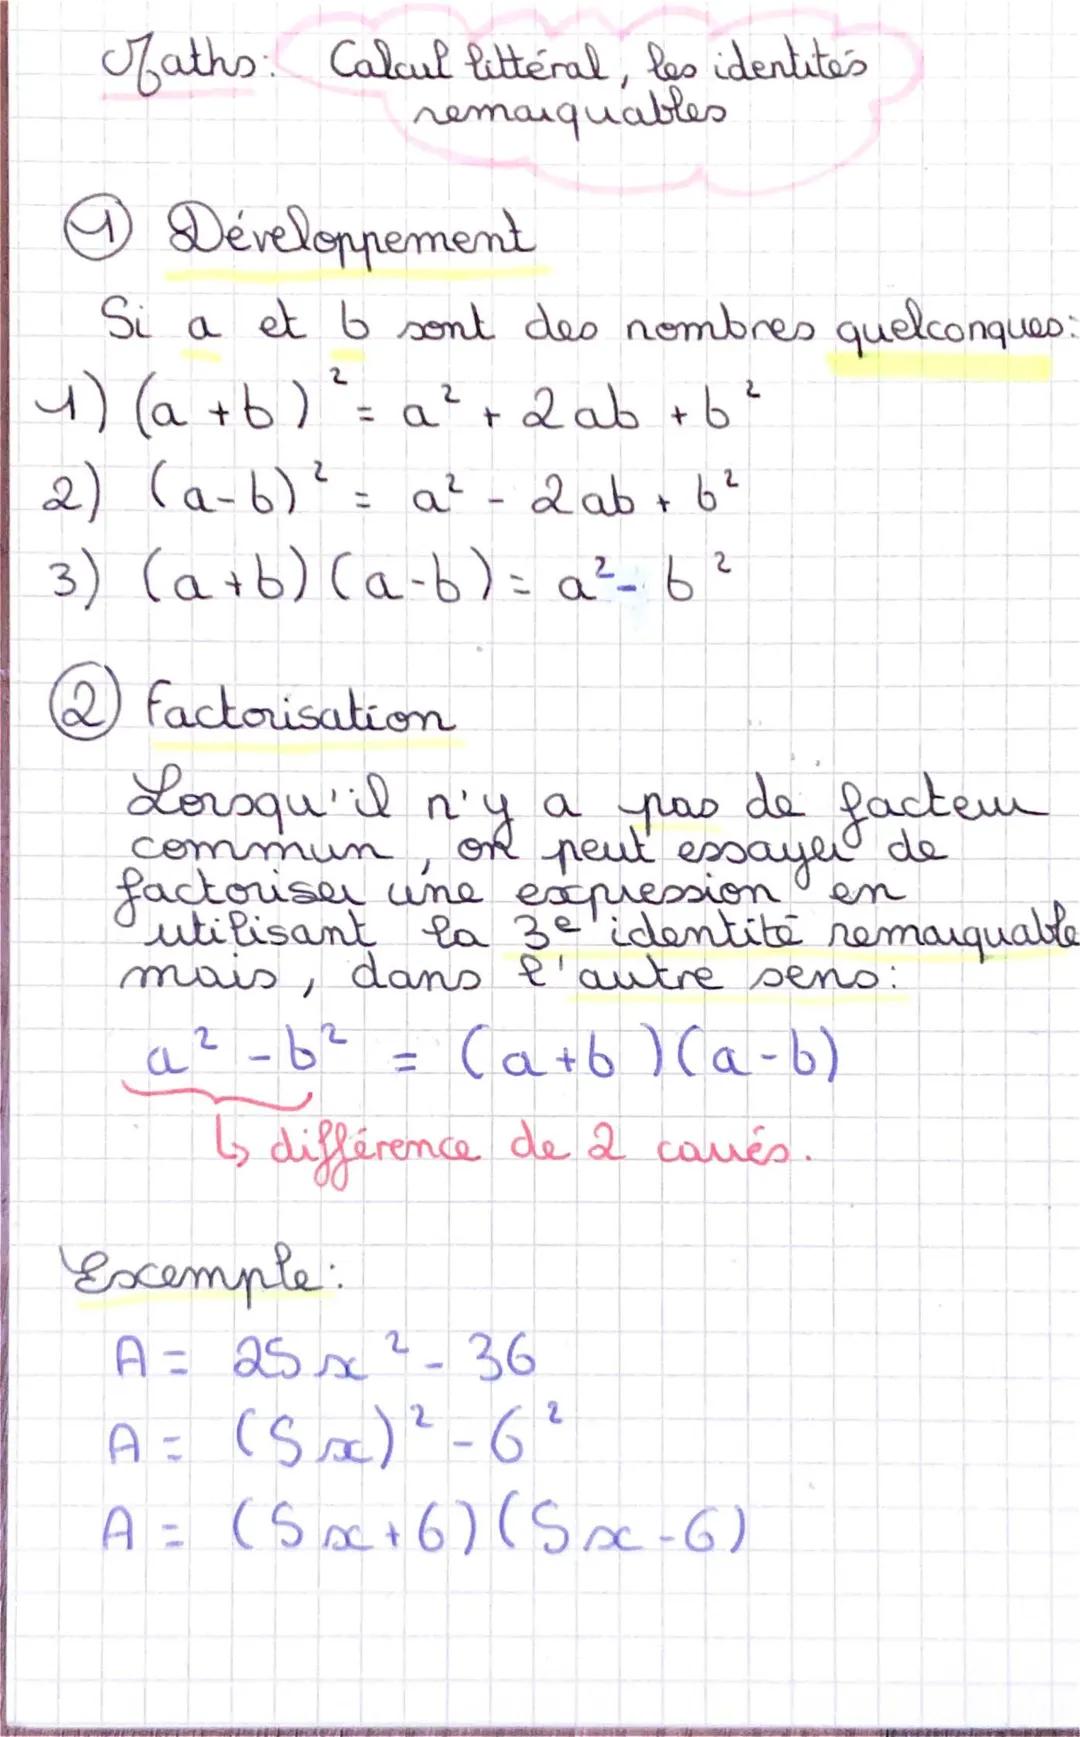 Maths: Calcul littéral, les identités
remarquables
① Développement
Si a et b sont des nombres quelconques:
1) (a+b)² = a² + 2ab + b²
2) (a-b)² = a² - 2ab + b²
3) (a+b)(a-b) = a² - b²
② Factorisation
Lorsqu'il n'y a pas de facteur
commun, on peut essayer de
factoriser une expression en
utilisant la 3e identité remarquable
mais, dans l'autre sens:
a² - b² = (a+b)(a-b)
↳ différence de 2 carrés.
Exemple:
A = 25x² - 36
A = (5x)² - 6²
A = (5x+6)(5x-6)